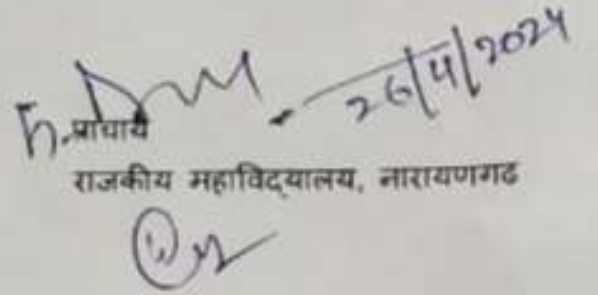 26/4/2024
प्राचार्य
राजकीय महाविद्यालय, नारायणगढ